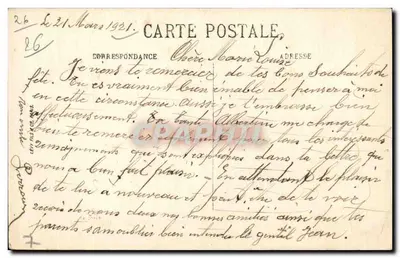 26 Le 21 Mars 1921. CARTE POSTALE
26
CORRESPONDANCE Chère Marie Louise ADRESSE
Je viens te remercier de tes bons souhaits de
fête. Tu es vraiment bien aimable de penser à moi
en cette circonstance aussi je t'embrasse bien
affectueusement. Ta tante Albertine me charge de
bien te remercier tous les intéressants
renseignements que sont expliqués dans ta lettre qui
nous a bien fait plaisir - En attendant le plaisir
de te lire à nouveau et peut-être de te voir
reçois de nous deux nos bonnes amitiés ainsi que tes
parents sans oublier bien entendu le gentil Jean.
7